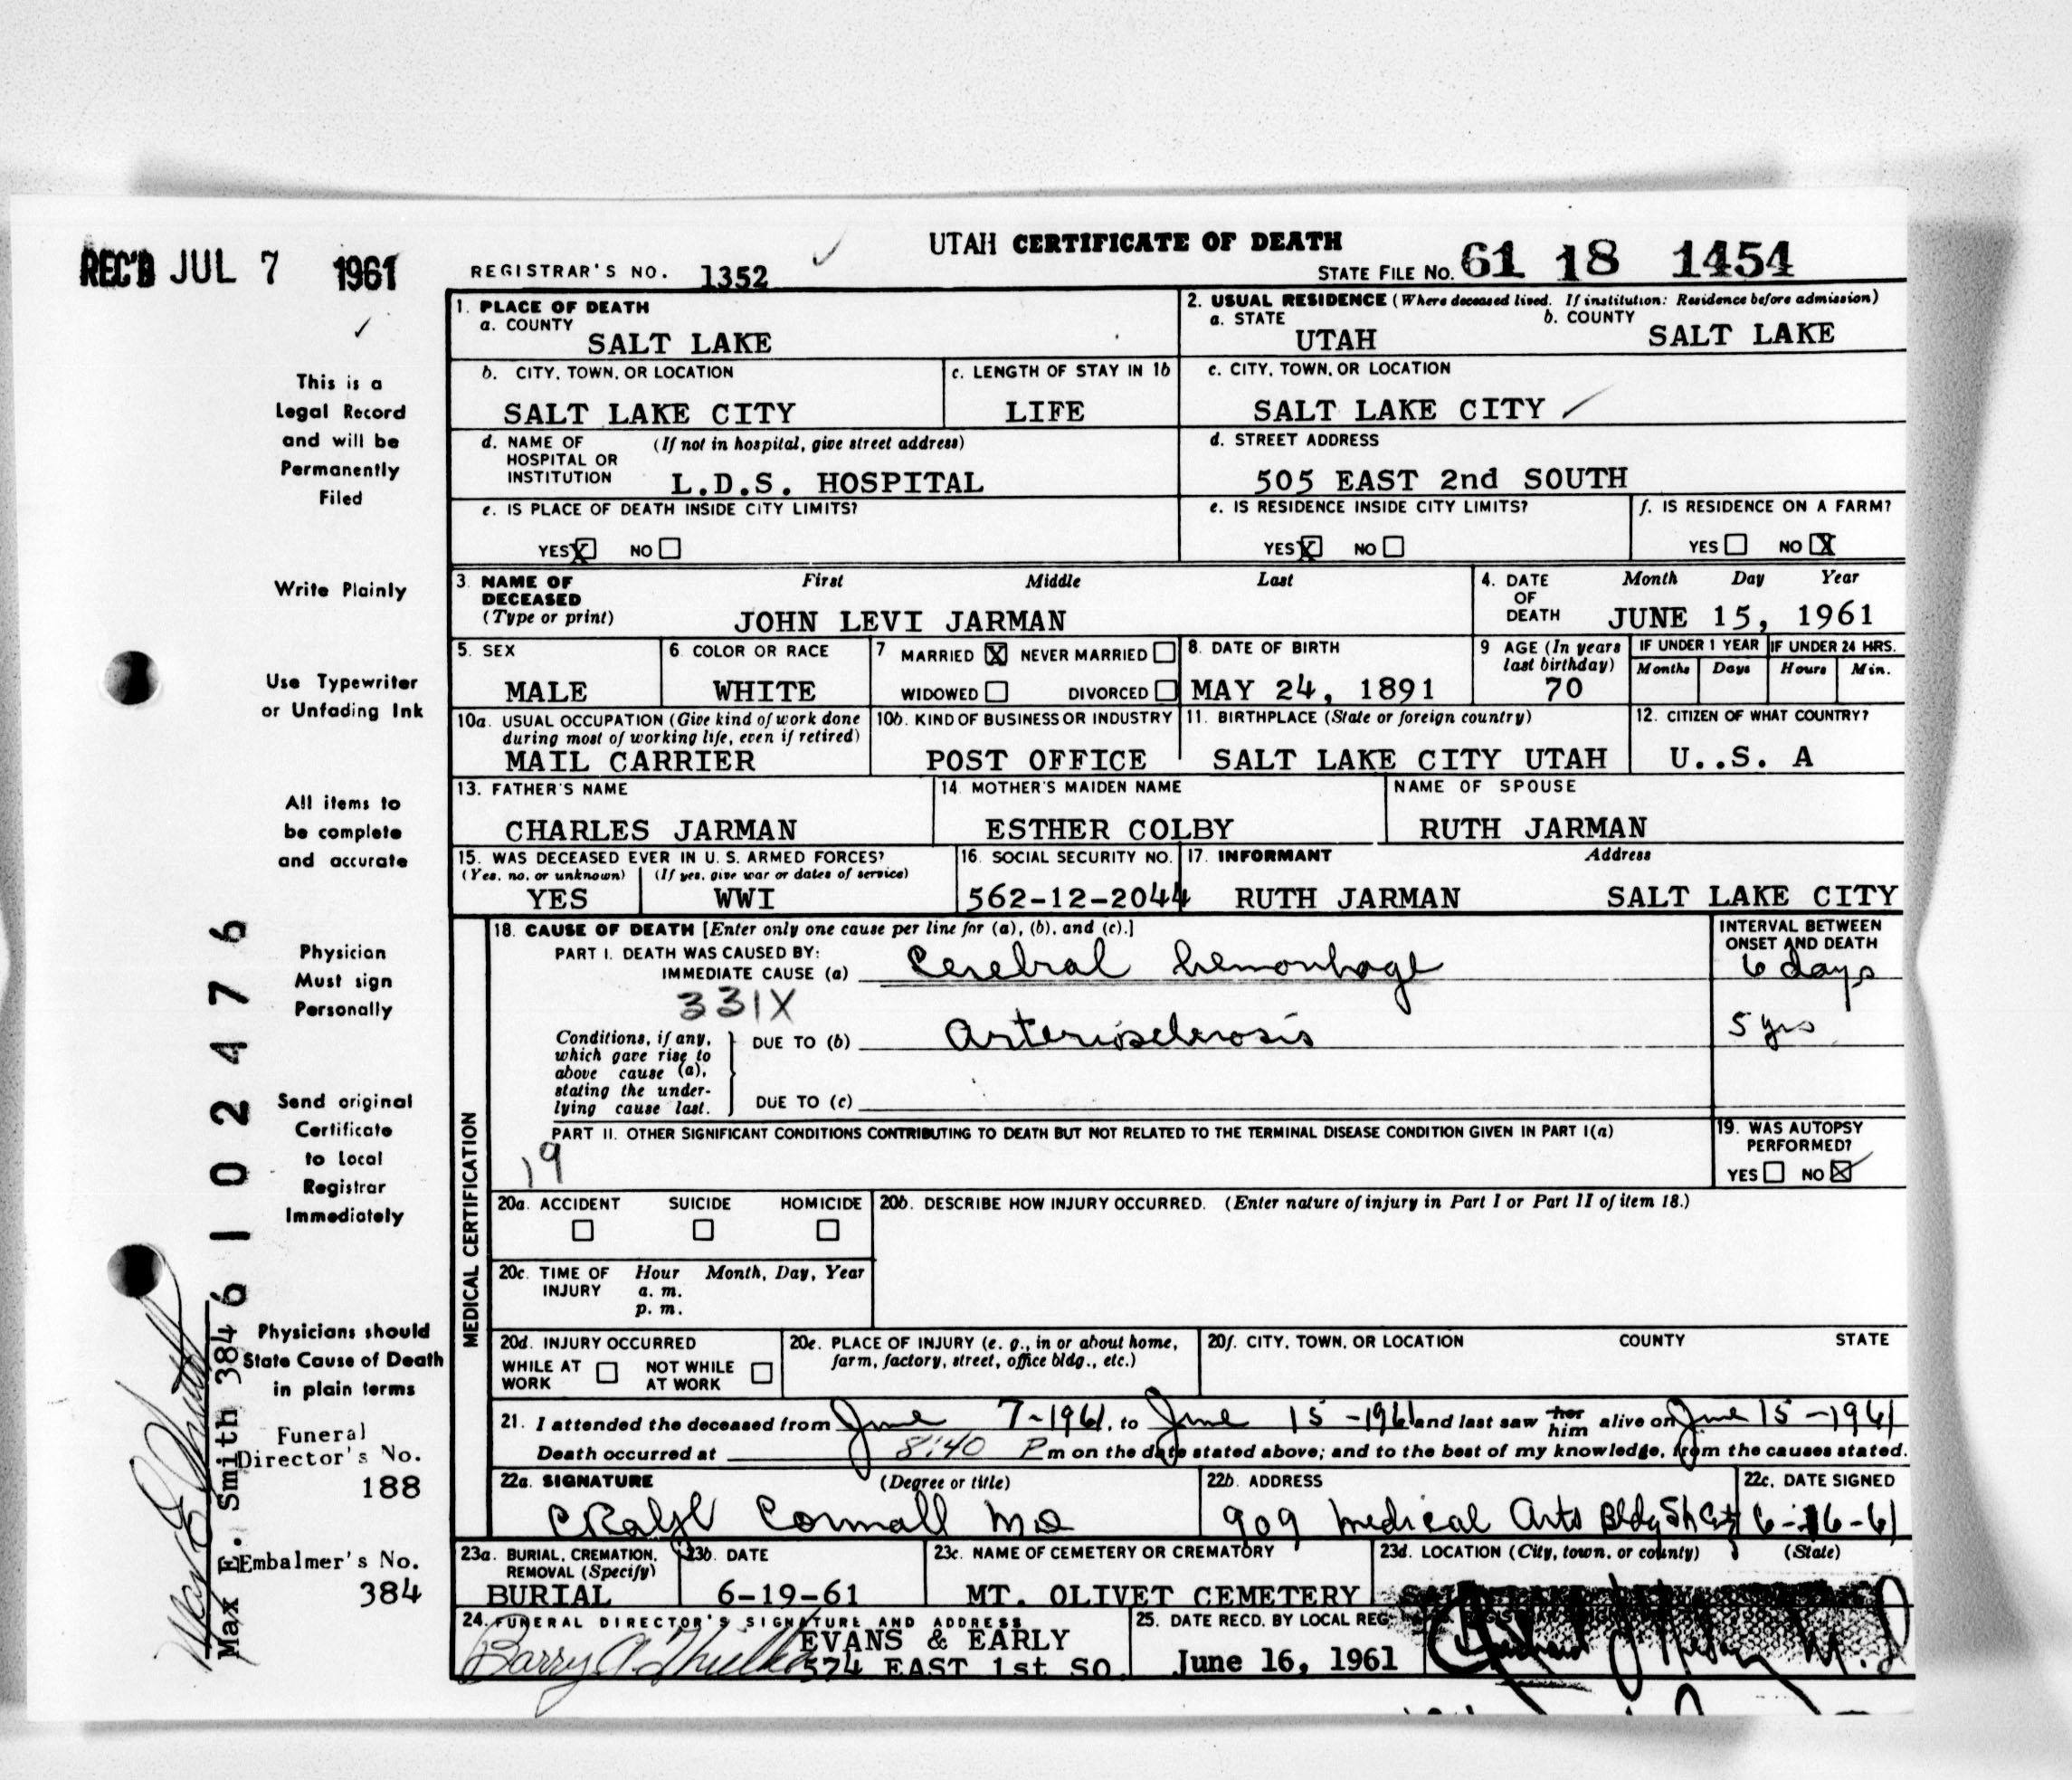 UTAH CERTIFICATE OF DEATH
REC'D JUL 7 1961
REGISTRAR'S NO. 1352
STATE FILE NO. 61 18 1454
1. PLACE OF DEATH
a. COUNTY
SALT LAKE
2. USUAL RESIDENCE (Where deceased lived. If institution: Residence before admission)
a. STATE
UTAH
b. COUNTY
SALT LAKE
b. CITY, TOWN, OR LOCATION
SALT LAKE CITY
c. LENGTH OF STAY IN 1b
LIFE
c. CITY, TOWN, OR LOCATION
SALT LAKE CITY
d. NAME OF HOSPITAL OR INSTITUTION
(If not in hospital, give street address)
L.D.S. HOSPITAL
d. STREET ADDRESS
505 EAST 2nd SOUTH
e. IS PLACE OF DEATH INSIDE CITY LIMITS?
YES X NO
e. IS RESIDENCE INSIDE CITY LIMITS?
YES X NO
f. IS RESIDENCE ON A FARM?
YES NO X
3. NAME OF DECEASED
(Type or print)
First Middle Last
JOHN LEVI JARMAN
4. DATE OF DEATH
Month Day Year
JUNE 15, 1961
5. SEX
MALE
6. COLOR OR RACE
WHITE
7 MARRIED X NEVER MARRIED
WIDOWED DIVORCED
8. DATE OF BIRTH
MAY 24, 1891
9 AGE (In years last birthday)
70
IF UNDER 1 YEAR
Months Days
IF UNDER 24 HRS.
Hours Min.
10a. USUAL OCCUPATION (Give kind of work done during most of working life, even if retired)
MAIL CARRIER
10b. KIND OF BUSINESS OR INDUSTRY
POST OFFICE
11. BIRTHPLACE (State or foreign country)
SALT LAKE CITY UTAH
12. CITIZEN OF WHAT COUNTRY?
U..S. A
13. FATHER'S NAME
CHARLES JARMAN
14. MOTHER'S MAIDEN NAME
ESTHER COLBY
NAME OF SPOUSE
RUTH JARMAN
15. WAS DECEASED EVER IN U. S. ARMED FORCES?
(Yes, no, or unknown) (If yes, give war or dates of service)
YES WWI
16. SOCIAL SECURITY NO.
562-12-2044
17. INFORMANT Address
RUTH JARMAN SALT LAKE CITY
MEDICAL CERTIFICATION
18. CAUSE OF DEATH [Enter only one cause per line for (a), (b), and (c).]
PART I. DEATH WAS CAUSED BY:
IMMEDIATE CAUSE (a) Cerebral hemorrhage
INTERVAL BETWEEN ONSET AND DEATH
6 days
331X
Conditions, if any, which gave rise to above cause (a), stating the underlying cause last.
DUE TO (b) Arteriosclerosis
5 yrs
DUE TO (c)
PART II. OTHER SIGNIFICANT CONDITIONS CONTRIBUTING TO DEATH BUT NOT RELATED TO THE TERMINAL DISEASE CONDITION GIVEN IN PART I(a)
19
19. WAS AUTOPSY PERFORMED?
YES NO X
20a. ACCIDENT SUICIDE HOMICIDE
20b. DESCRIBE HOW INJURY OCCURRED. (Enter nature of injury in Part I or Part II of item 18.)
20c. TIME OF INJURY
Hour Month, Day, Year
a. m.
p. m.
20d. INJURY OCCURRED
WHILE AT WORK NOT WHILE AT WORK
20e. PLACE OF INJURY (e. g., in or about home, farm, factory, street, office bldg., etc.)
20f. CITY, TOWN, OR LOCATION COUNTY STATE
21. I attended the deceased from June 7-1961, to June 15-1961 and last saw her him alive on June 15-1961
Death occurred at 8:40 P m on the date stated above; and to the best of my knowledge, from the causes stated.
22a. SIGNATURE (Degree or title)
C Ralph Cornwall MD
22b. ADDRESS
909 Medical Arts Bldg
22c. DATE SIGNED
6-16-61
23a. BURIAL, CREMATION, REMOVAL (Specify)
BURIAL
23b. DATE
6-19-61
23c. NAME OF CEMETERY OR CREMATORY
MT. OLIVET CEMETERY
23d. LOCATION (City, town, or county) (State)
24. FUNERAL DIRECTOR'S SIGNATURE AND ADDRESS
EVANS & EARLY
574 EAST 1st SO.
25. DATE RECD. BY LOCAL REG.
June 16, 1961
This is a
Legal Record
and will be
Permanently
Filed
Write Plainly
Use Typewriter
or Unfading Ink
All items to
be complete
and accurate
Physician
Must sign
Personally
Send original
Certificate
to Local
Registrar
Immediately
Physicians should
State Cause of Death
in plain terms
Funeral
Director's No.
188
Embalmer's No.
384
Max E. Smith 384
6102476